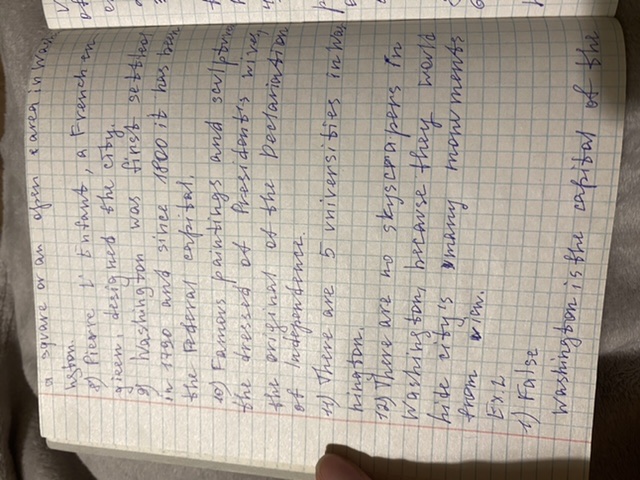 a square or an open area in Was
ngton.
8) Pierre L'Enfant, a Frenchen
gineer designed the city.
9) Washington was first settled
in 1790 and since 1800 it has been
the Federal capital.
10) Famous paintings and sculpture
the dressed of President's wives,
the original of the Declariation
of Independence.
11) There are 5 universities in Was
hington.
12) There are no skyscrapers in
Washington, because they would
hide city's many monuments
from view.
Ex.2
1) False
Washington is the capital of the